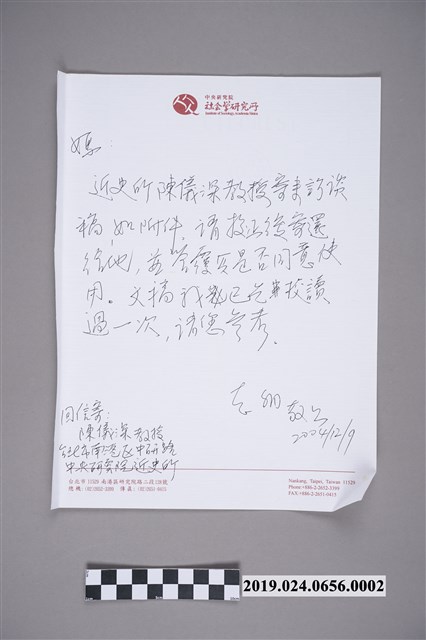 中央研究院
社會學研究所
Institute of Sociology, Academia Sinica
媽：
近史所陳儀深教授寄來訪談
稿，如附件，請校正後寄還
給他，並答覆是否同意使
用。文稿我已先校讀
過一次，請您參考。
志 敬上
2004/12/9
回信寄：
陳儀深教授
台北市南港區中研路
中央研究院近史所
台北市11529南港區研究院路二段128號
Nankang, Taipei, Taiwan 11529
Phone:+886-2-2652-3399
FAX:+886-2-2651-0415
2019.024.0656.0002